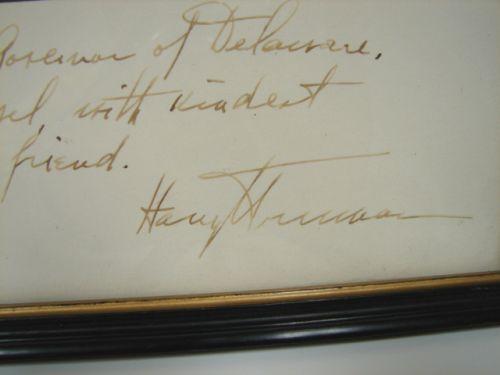 Governor of Delaware,
with kindest
friend.
Harry Truman